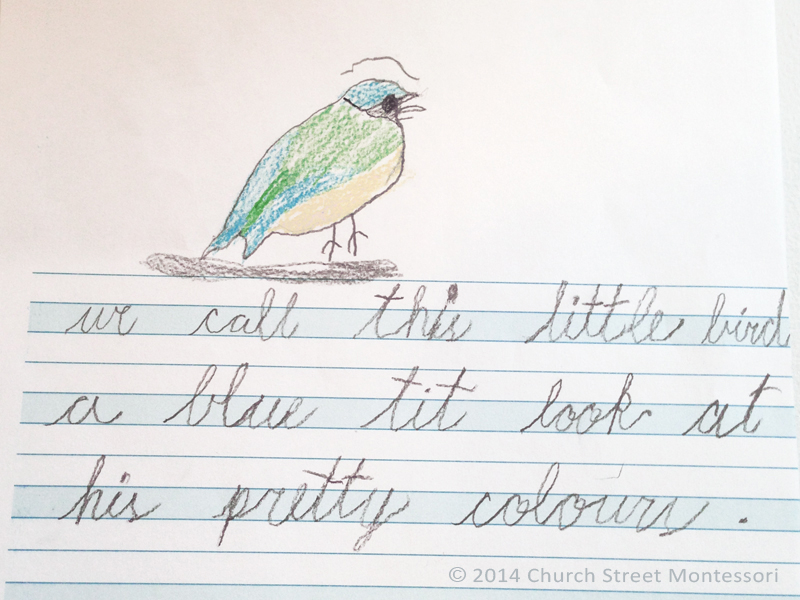 we call this little bird
a blue tit look at
his pretty colours .
© 2014 Church Street Montessori